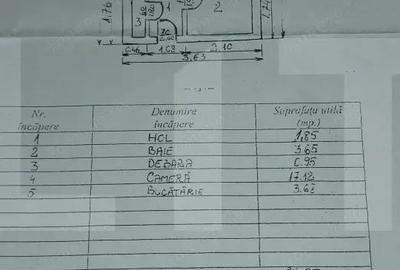 1.76
3
1
2
0.46
1.03
2.10
3.63
Nr. încăpere
Denumire încăpere
Suprafața utilă (mp.)
1 HOL 1,85
2 BAIE 3.65
3 DEBARA 0.95
4 CAMERĂ 17.12
5 BUCĂTĂRIE